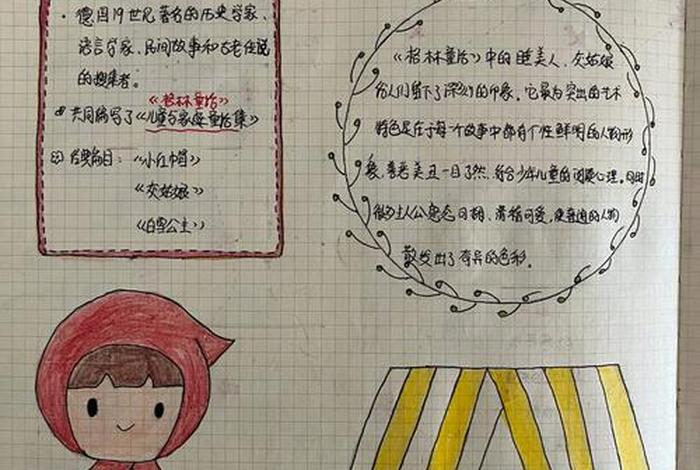 · 德国19世纪著名的历史学家、
语言学家，民间故事和古老传说
的搜集者。
《格林童话》
共同编写了《儿童与家庭童话集》
代表篇目：《小红帽》
《灰姑娘》
《白雪公主》
《格林童话》中的睡美人、灰姑娘
给人们留下了深刻的印象。它最为突出的艺术
特色是在于每个故事中都有个性鲜明的人物形
象，善恶美丑一目了然，符合少年儿童的阅读心理。同时
主人公憨态可掬、滑稽可爱，使普通的人物
散发出了奇异的色彩。